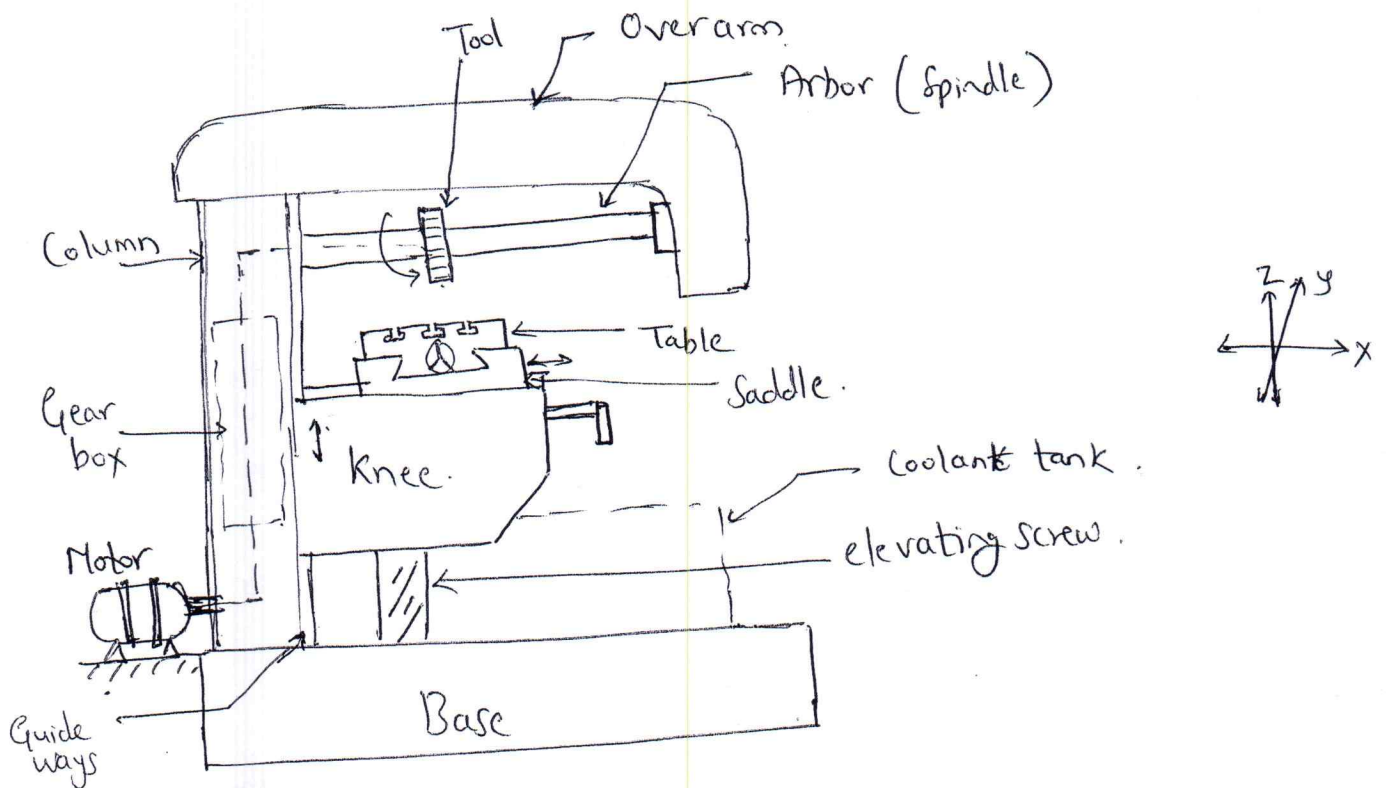 Tool
Over arm
Arbor (Spindle)
Column
Z
y
X
Table
Saddle.
Gear
box
Knee.
Coolant tank.
Motor
elevating screw.
Guide
ways
Base